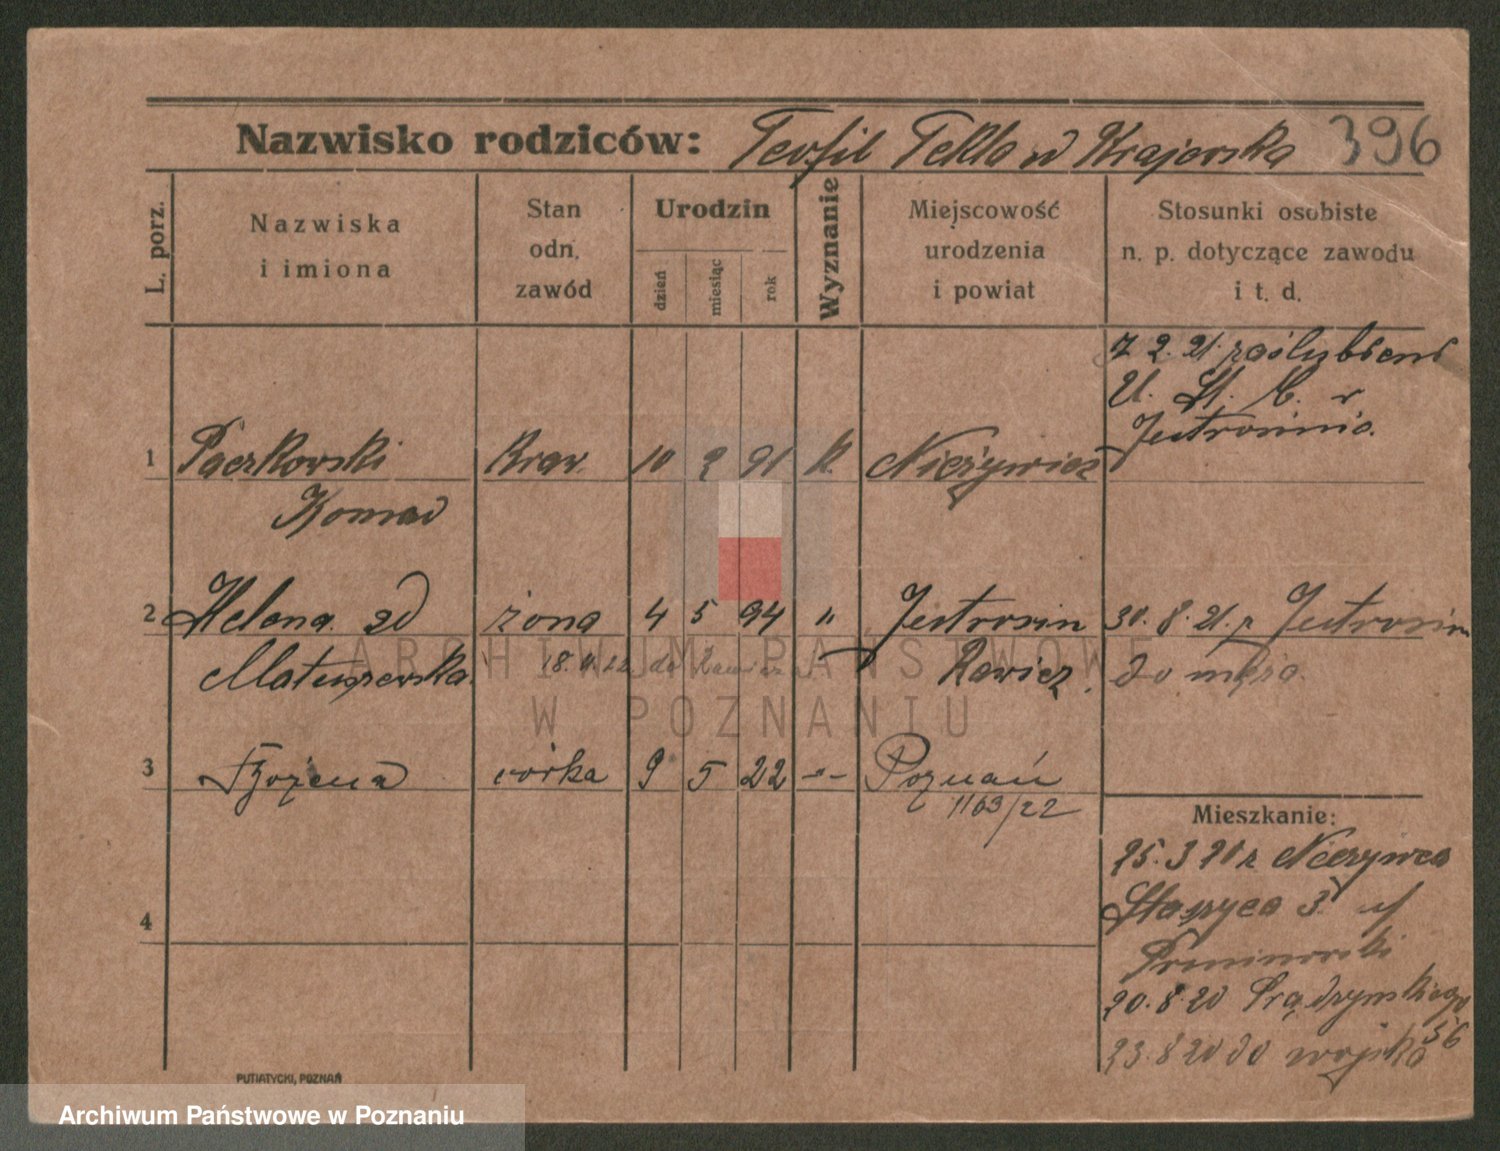 Nazwisko rodziców: Teofil Tekla zd Krajewska 396
L. porz.
Nazwiska
i imiona
Stan
odn.
zawód
Urodzin
dzień
miesiąc
rok
Wyznanie
Miejscowość
urodzenia
i powiat
Stosunki osobiste
n. p. dotyczące zawodu
i t. d.
7 2. 21. zaślubieni
U. St. C. w
Jutrosinie.
1 Paczkowski kraw. 10 2 91 k. Nieżywieć
Konrad
2 Helena zd żona 4 5 94 " Jutrosin 30. 8. 21. z Jutrosin
Matuszewska. 18. 22 do Rawicz. do męża.
3 Bożena córka 9 5 22 -"- Poznań
1163/22
Mieszkanie:
25. 3 20 z Nieżywca
Staszyca 3
4
20. 8. 20 Prądzyńskiego
56
23. 8 20 do wojska
PUTIATYCKI, POZNAŃ
ARCHIWUM PAŃSTWOWE
W POZNANIU
Archiwum Państwowe w Poznaniu